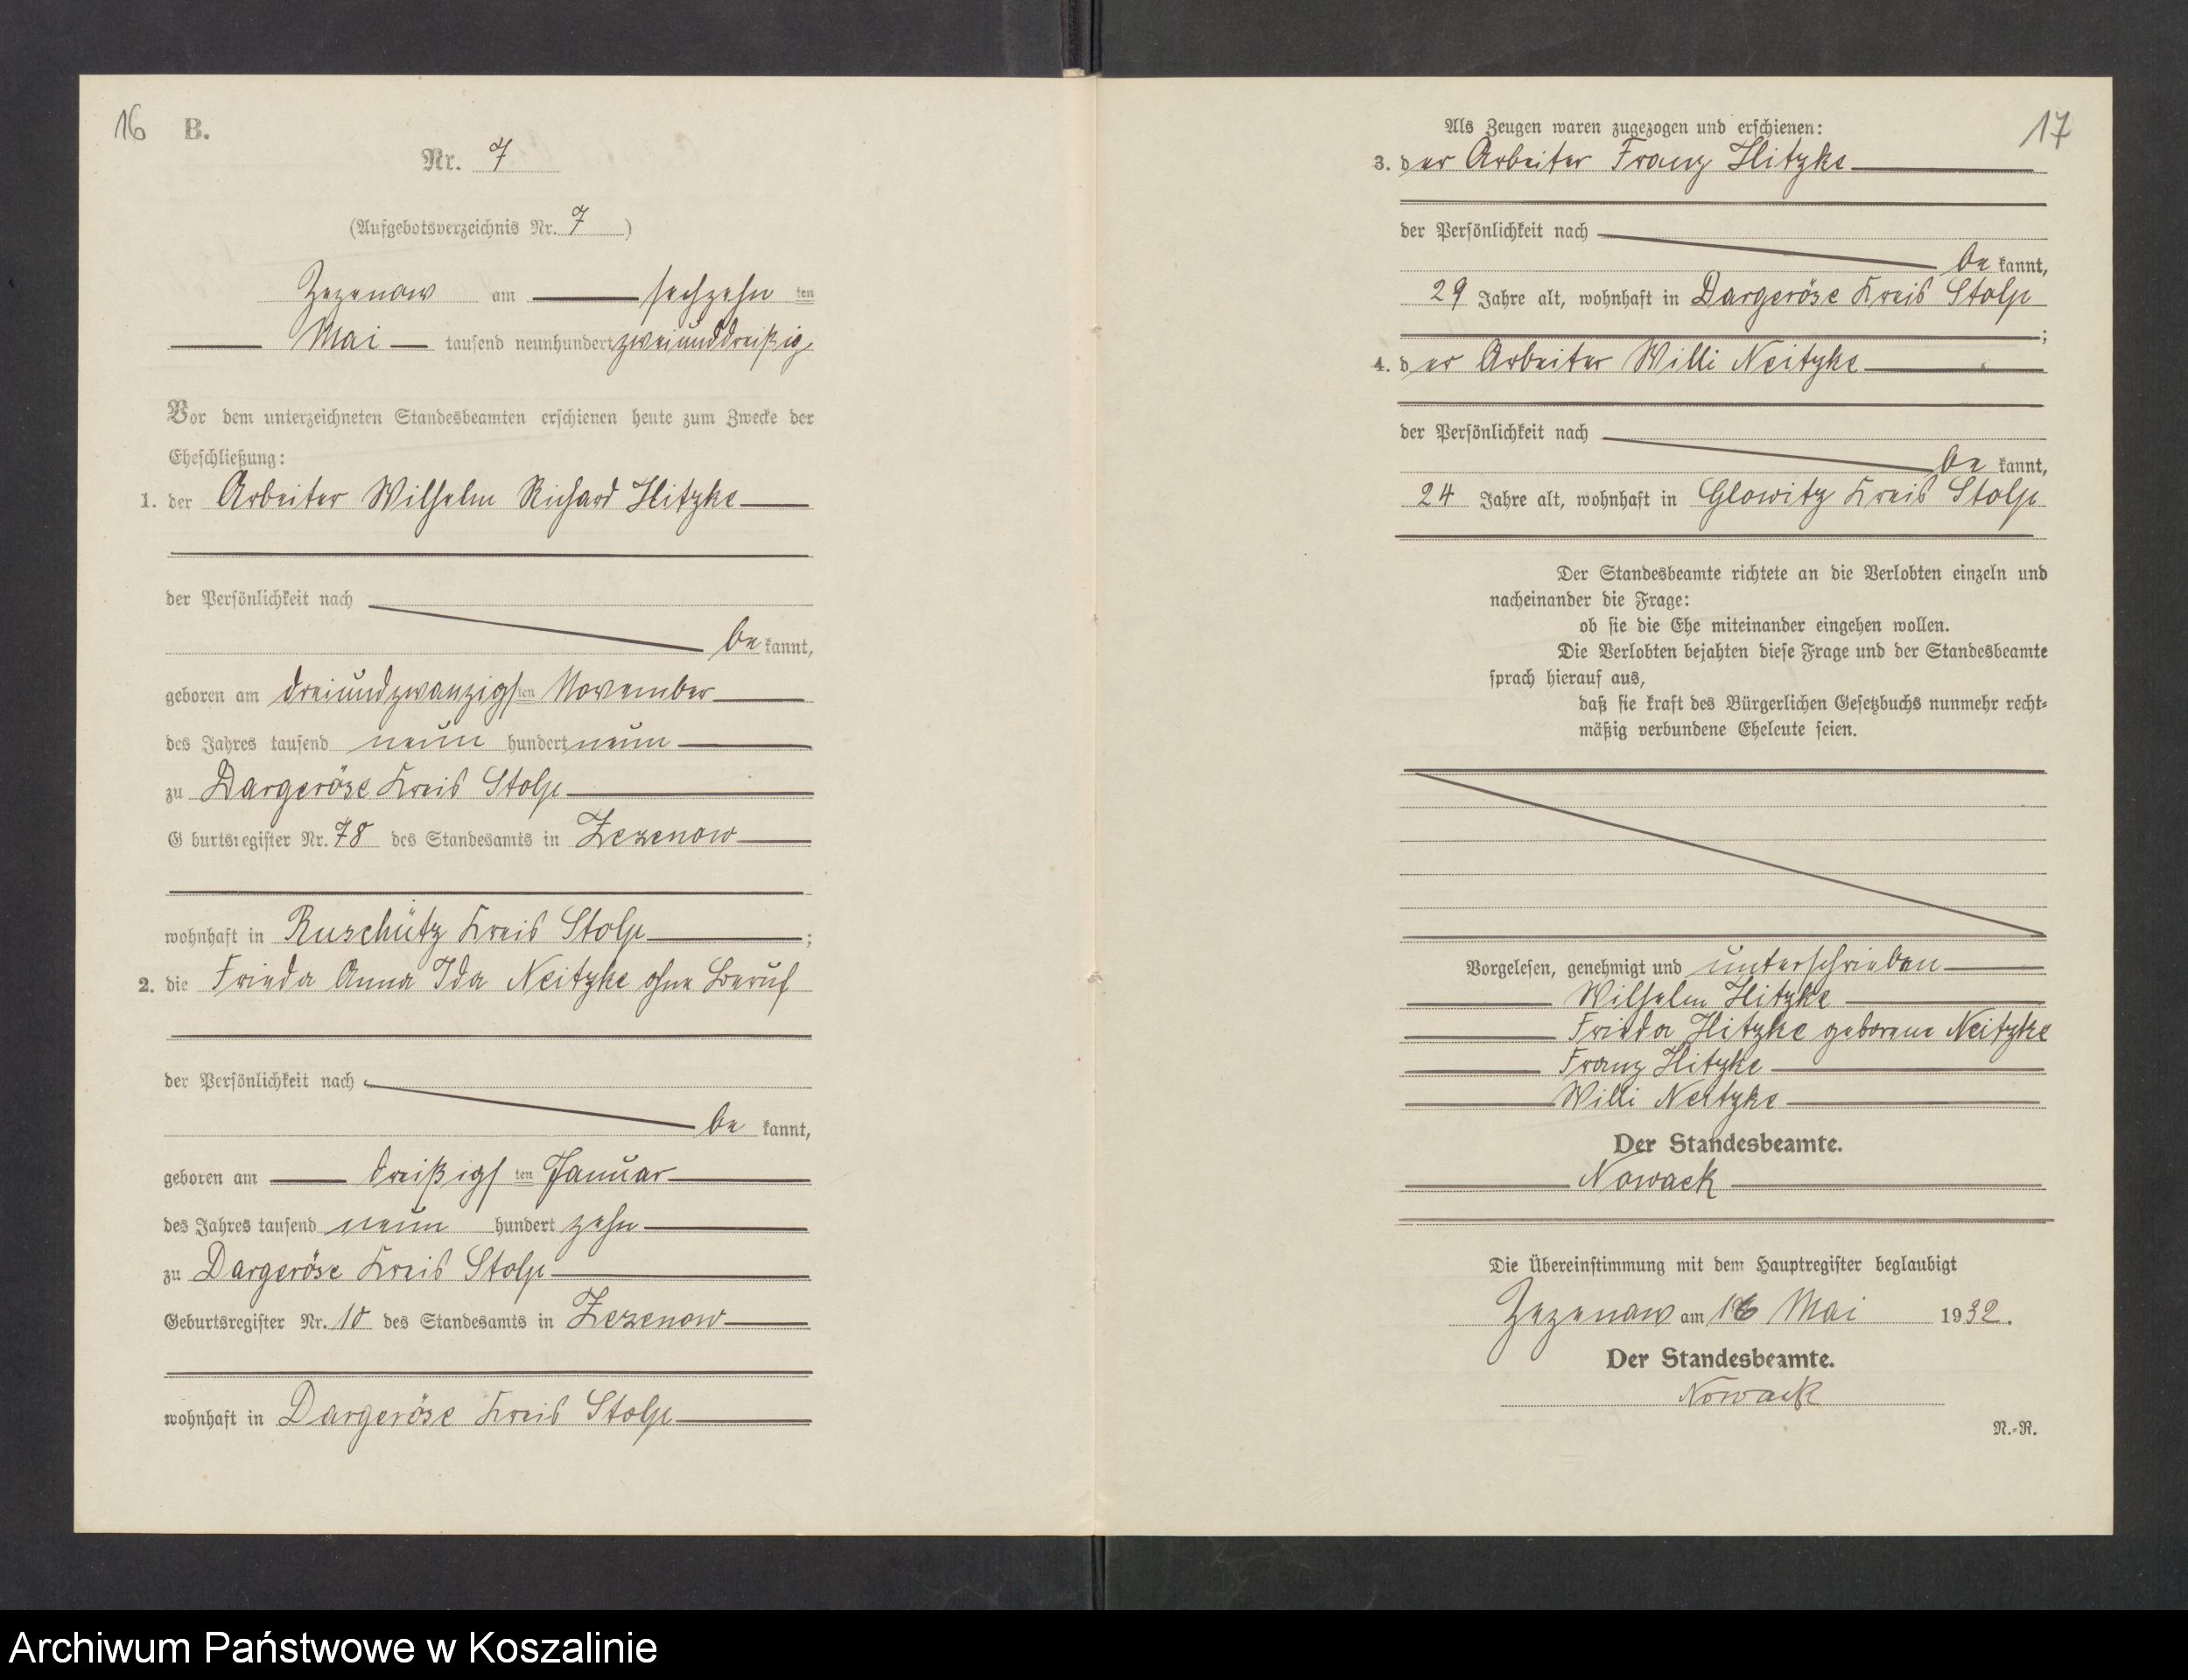 16 B.
Nr. 7
(Aufgebotsverzeichnis Nr. 7)
Zezenow am sechzehn ten
Mai tausend neunhundert zweiunddreißig.
Vor dem unterzeichneten Standesbeamten erschienen heute zum Zwecke der
Eheschließung:
1. der Arbeiter Wilhelm Richard Hitzke
der Persönlichkeit nach
be kannt,
geboren am dreiundzwanzigsten November
des Jahres tausend neun hundert neun
zu Dargeröse Kreis Stolp
G burtsregister Nr. 78 des Standesamts in Zezenow
wohnhaft in Ruschütz Kreis Stolp ;
2. die Frieda Anna Ida Neitzke ohne Beruf
der Persönlichkeit nach
be kannt,
geboren am dreißigsten Januar
des Jahres tausend neun hundert zehn
zu Dargeröse Kreis Stolp
Geburtsregister Nr. 10 des Standesamts in Zezenow
wohnhaft in Dargeröse Kreis Stolp
17
Als Zeugen waren zugezogen und erschienen:
3. der Arbeiter Franz Hitzke
der Persönlichkeit nach
be kannt,
29 Jahre alt, wohnhaft in Dargeröse Kreis Stolp
;
4. der Arbeiter Willi Neitzke
der Persönlichkeit nach
be kannt,
24 Jahre alt, wohnhaft in Glowitz Kreis Stolp
Der Standesbeamte richtete an die Verlobten einzeln und
nacheinander die Frage:
ob sie die Ehe miteinander eingehen wollen.
Die Verlobten bejahten diese Frage und der Standesbeamte
sprach hierauf aus,
daß sie kraft des Bürgerlichen Gesetzbuchs nunmehr recht-
mäßig verbundene Eheleute seien.
Vorgelesen, genehmigt und unterschrieben
Wilhelm Hitzke
Frieda Hitzke geborene Neitzke
Franz Hitzke
Willi Neitzke
Der Standesbeamte.
Nowack
Die Übereinstimmung mit dem Hauptregister beglaubigt
Zezenow am 16 Mai 1932.
Der Standesbeamte.
Nowack
N.-R.
Archiwum Państwowe w Koszalinie